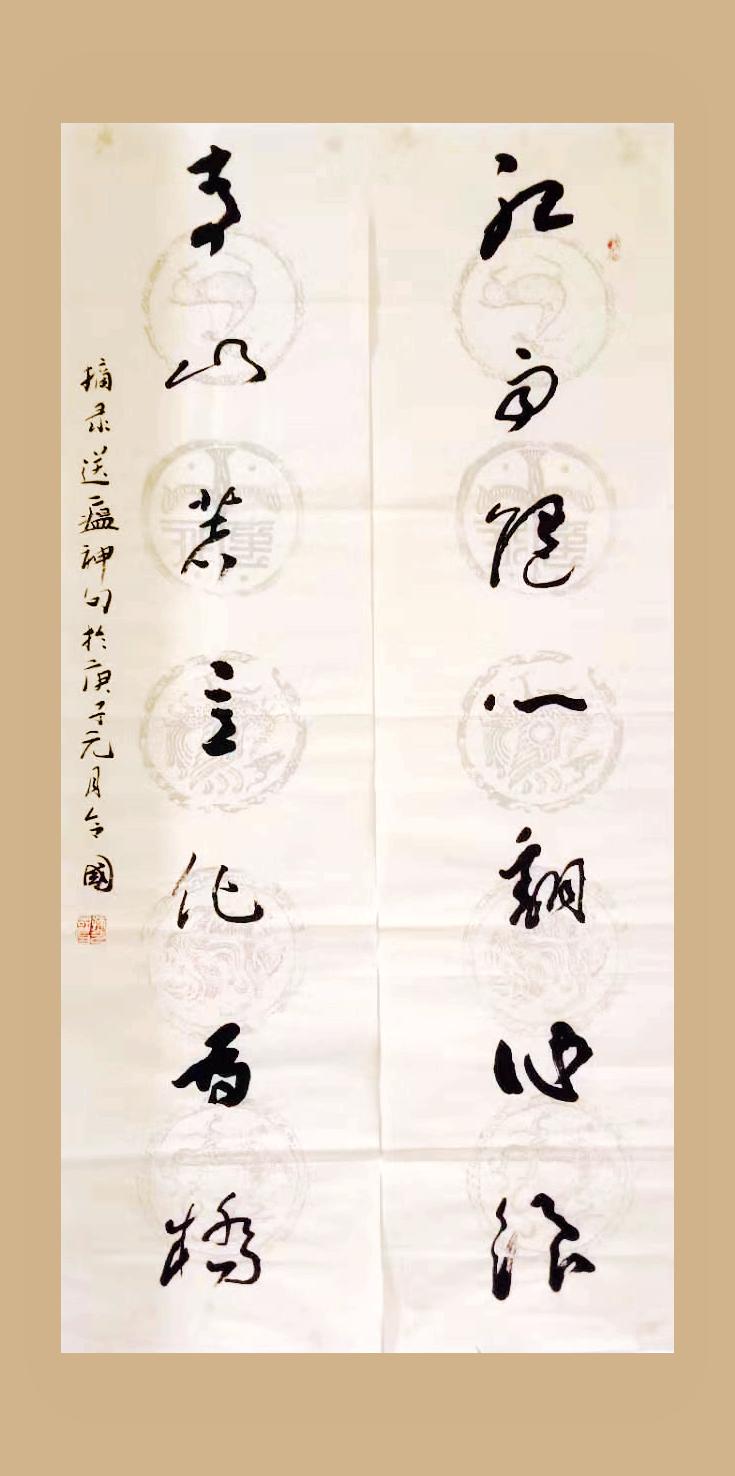 红雨随心翻作浪
青山着意化为桥
摘录送瘟神句於庚子元月令國